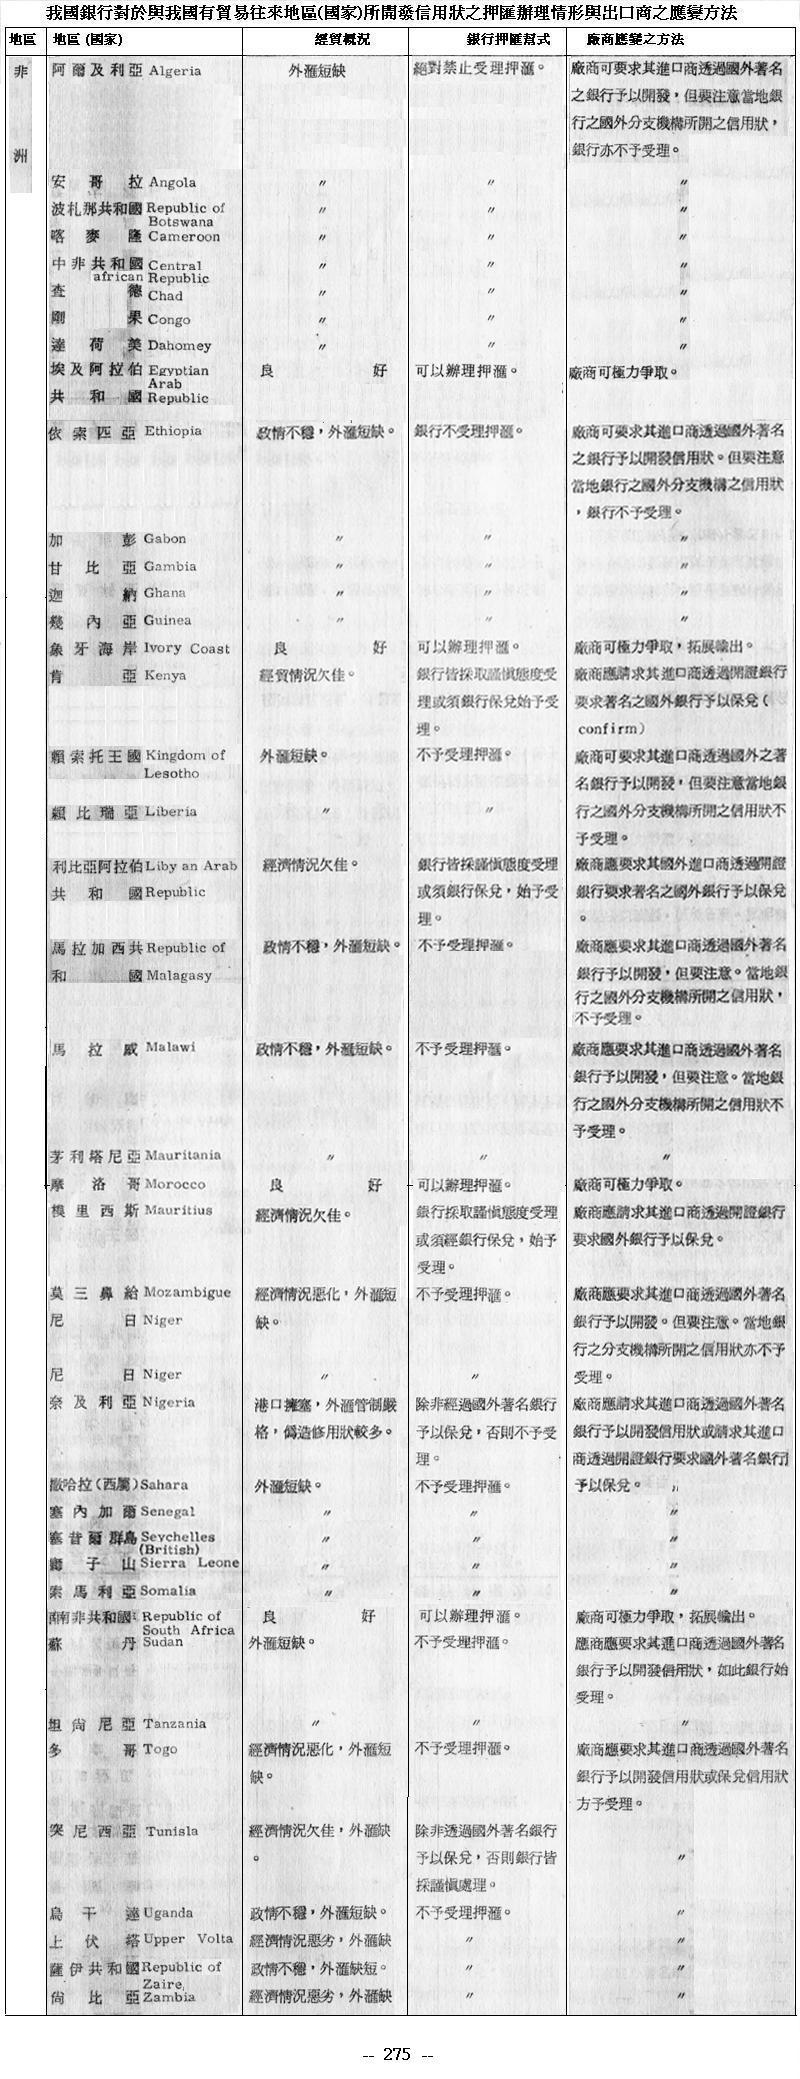 我國銀行對於與我國有貿易往來地區(國家)所開發信用狀之押匯辦理情形與出口商之應變方法
地區 地區 (國家) 經貿概況 銀行押匯幫式 廠商應變之方法
非洲
阿爾及利亞 Algeria 外滙短缺 絕對禁止受理押滙。 廠商可要求其進口商透過國外著名
之銀行予以開發，但要注意當地銀
行之國外分支機構所開之信用狀，
銀行亦不予受理。
安哥拉 Angola 〃 〃 〃
波札那共和國 Republic of 〃 〃 〃
Botswana
喀麥隆 Cameroon 〃 〃 〃
中非共和國 Central 〃 〃 〃
african Republic
查德 Chad 〃 〃 〃
剛果 Congo 〃 〃 〃
達荷美 Dahomey 〃 〃 〃
埃及阿拉伯 Egyptian 良好 可以辦理押滙。 廠商可極力爭取。
Arab
共和國 Republic
依索匹亞 Ethiopia 政情不穩，外滙短缺。 銀行不受理押滙。 廠商可要求其進口商透過國外著名
之銀行予以開發信用狀。但要注意
當地銀行之國外分支機構之信用狀
，銀行不予受理。
加彭 Gabon 〃 〃 〃
甘比亞 Gambia 〃 〃 〃
迦納 Ghana 〃 〃 〃
幾內亞 Guinea 〃 〃 〃
象牙海岸 Ivory Coast 良好 可以辦理押滙。 廠商可極力爭取，拓展輸出。
肯亞 Kenya 經貿情況欠佳。 銀行皆採取謹愼態度受 廠商應請求其進口商透過開證銀行
理或須銀行保兌始予受 要求著名之國外銀行予以保兌(
理。 confirm)
賴索托王國 Kingdom of 外滙短缺。 不予受理押滙。 廠商可要求其進口商透過國外之著
Lesotho 名銀行予以開發，但要注意當地銀
賴比瑞亞 Liberia 〃 〃 行之國外分支機構所開之信用狀不
予受理。
利比亞阿拉伯 Liby an Arab 經濟情況欠佳。 銀行皆採謹愼態度受理 廠商應要求其國外進口商透過開證
共和國 Republic 或須銀行保兌，始予受 銀行要求著名之國外銀行予以保兌
理。 。
馬拉加西共 Republic of 政情不穩，外滙短缺。 不予受理押滙。 廠商應要求其進口商透過國外著名
和國 Malagasy 銀行予以開發，但要注意。當地銀
行之國外分支機構所開之信用狀，
不予受理。
馬拉威 Malawi 政情不穩，外滙短缺。 不予受理押滙。 廠商應要求其進口商透過國外著名
銀行予以開發，但要注意。當地銀
行之國外分支機構所開之信用狀不
予受理。
茅利塔尼亞 Mauritania 〃 〃 〃
摩洛哥 Morocco 良好 可以辦理押滙。 廠商可極力爭取。
模里西斯 Mauritius 經濟情況欠佳。 銀行採取謹愼態度受理 廠商應請求其進口商透過開證銀行
或須經銀行保兌，始予 要求國外銀行予以保兌。
受理。
莫三鼻給 Mozambigue 經濟情況惡化，外滙短 不予受理押滙。 廠商應要求其進口商透過國外著名
尼日 Niger 缺。 銀行予以開發。但要注意。當地銀
行之分支機構所開之信用狀亦不予
尼日 Niger 〃 〃 受理。
奈及利亞 Nigeria 港口擁塞，外滙管制嚴 除非經過國外著名銀行 廠商應請求其進口商透過國外著名
格，僞造修用狀較多。 予以保兌，否則不予受 銀行予以開發信用狀或請求其進口
理。 商透過開證銀行要求國外著名銀行
撒哈拉(西屬) Sahara 外滙短缺。 不予受理押滙。 予以保兌。 〃
塞內加爾 Senegal 〃 〃 〃
塞昔爾群島 Seychelles 〃 〃 〃
(British)
獅子山 Sierra Leone 〃 〃 〃
索馬利亞 Somalia 〃 〃 〃
南非共和國 Republic of 良好 可以辦理押滙。 廠商可極力爭取，拓展輸出。
South Africa
蘇丹 Sudan 外滙短缺。 不予受理押滙。 應商應要求其進口商透過國外著名
銀行予以開發信用狀，如此銀行始
受理。
坦尚尼亞 Tanzania 〃 〃 〃
多哥 Togo 經濟情況惡化，外滙短 不予受理押滙。 廠商應要求其進口商透過國外著名
缺。 銀行予以開發信用狀或保兌信用狀
方予受理。
突尼西亞 Tunisla 經濟情況欠佳，外滙缺 除非透過國外著名銀行
。 予以保兌，否則銀行皆 〃
採謹愼處理。
烏干達 Uganda 政情不穩，外滙短缺。 不予受理押滙。 〃
上伏塔 Upper Volta 經濟情況惡劣，外滙缺 〃 〃
薩伊共和國 Republic of 政情不穩，外滙缺短。 〃 〃
Zaire,
尙比亞 Zambia 經濟情況惡劣，外滙缺 〃 〃
-- 275 --